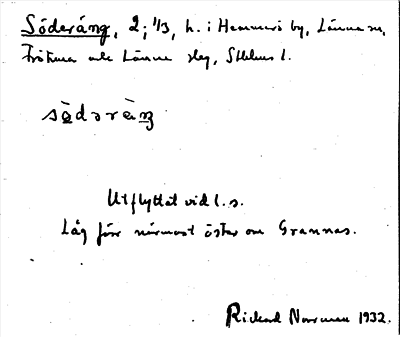 Söderäng, 2; 1/3, h. i Hammarö by, Länna sn,
Frötuna och Länna slg, Sthlms l.
sö̀dəræ̀ŋ
Utflyttat vid l. s.
Låg förr närmast öster om Grannas.
Rickard Norrman 1932.